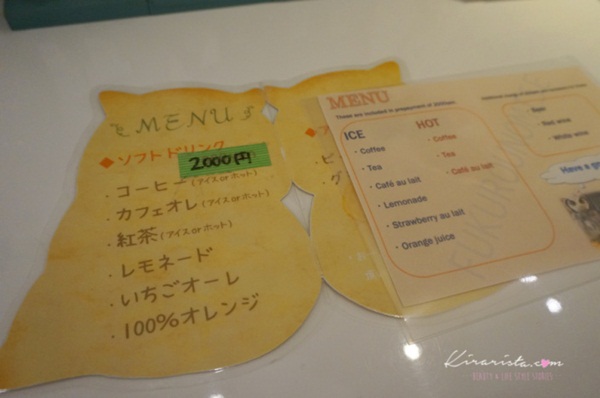 MENU
◆ソフトドリンク
2000円
・コーヒー(アイス or ホット)
・カフェオレ(アイス or ホット)
・紅茶(アイス or ホット)
・レモネード
・いちごオーレ
・100%オレンジ
MENU
These are included in prepayment of
ICE
・Coffee
・Tea
・Café au lait
・Lemonade
・Strawberry au lait
・Orange juice
HOT
・Coffee
・Tea
・Café au lait
・Beer
・Red wine
・White wine
Have a
Kirarista.com
BEAUTY & LIFE STYLE STORIES